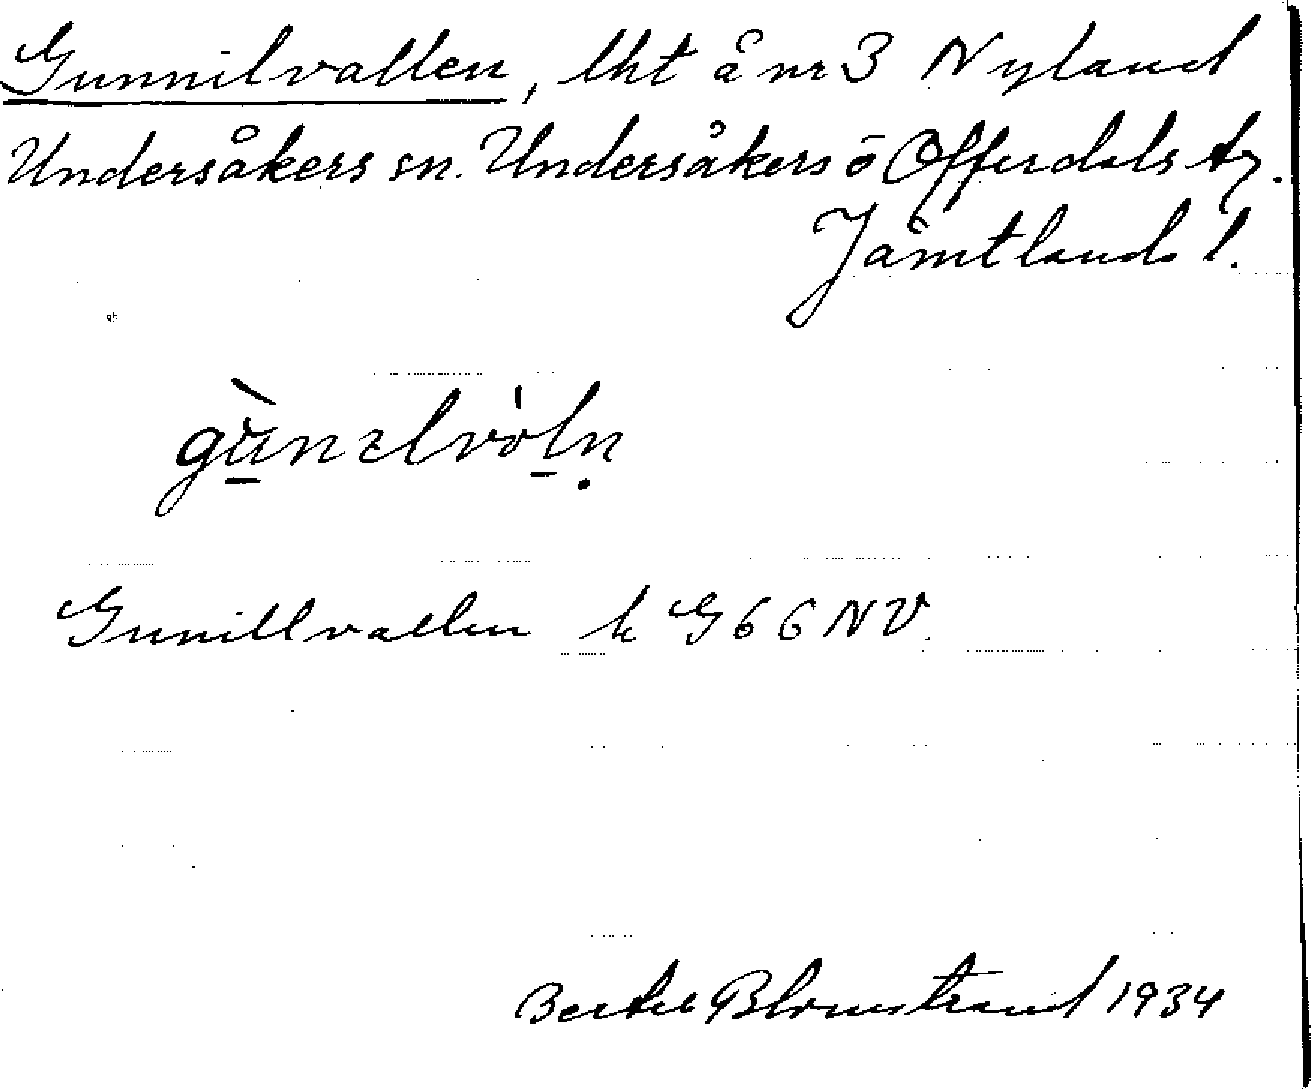 Gunnilvallen, lht å nr 3 Nyland
Undersåkers sn. Undersåkers o Offerdals tg.
Jämtlands l.
Gunillvallen k G66NV.
Bertil Blomstrand 1934